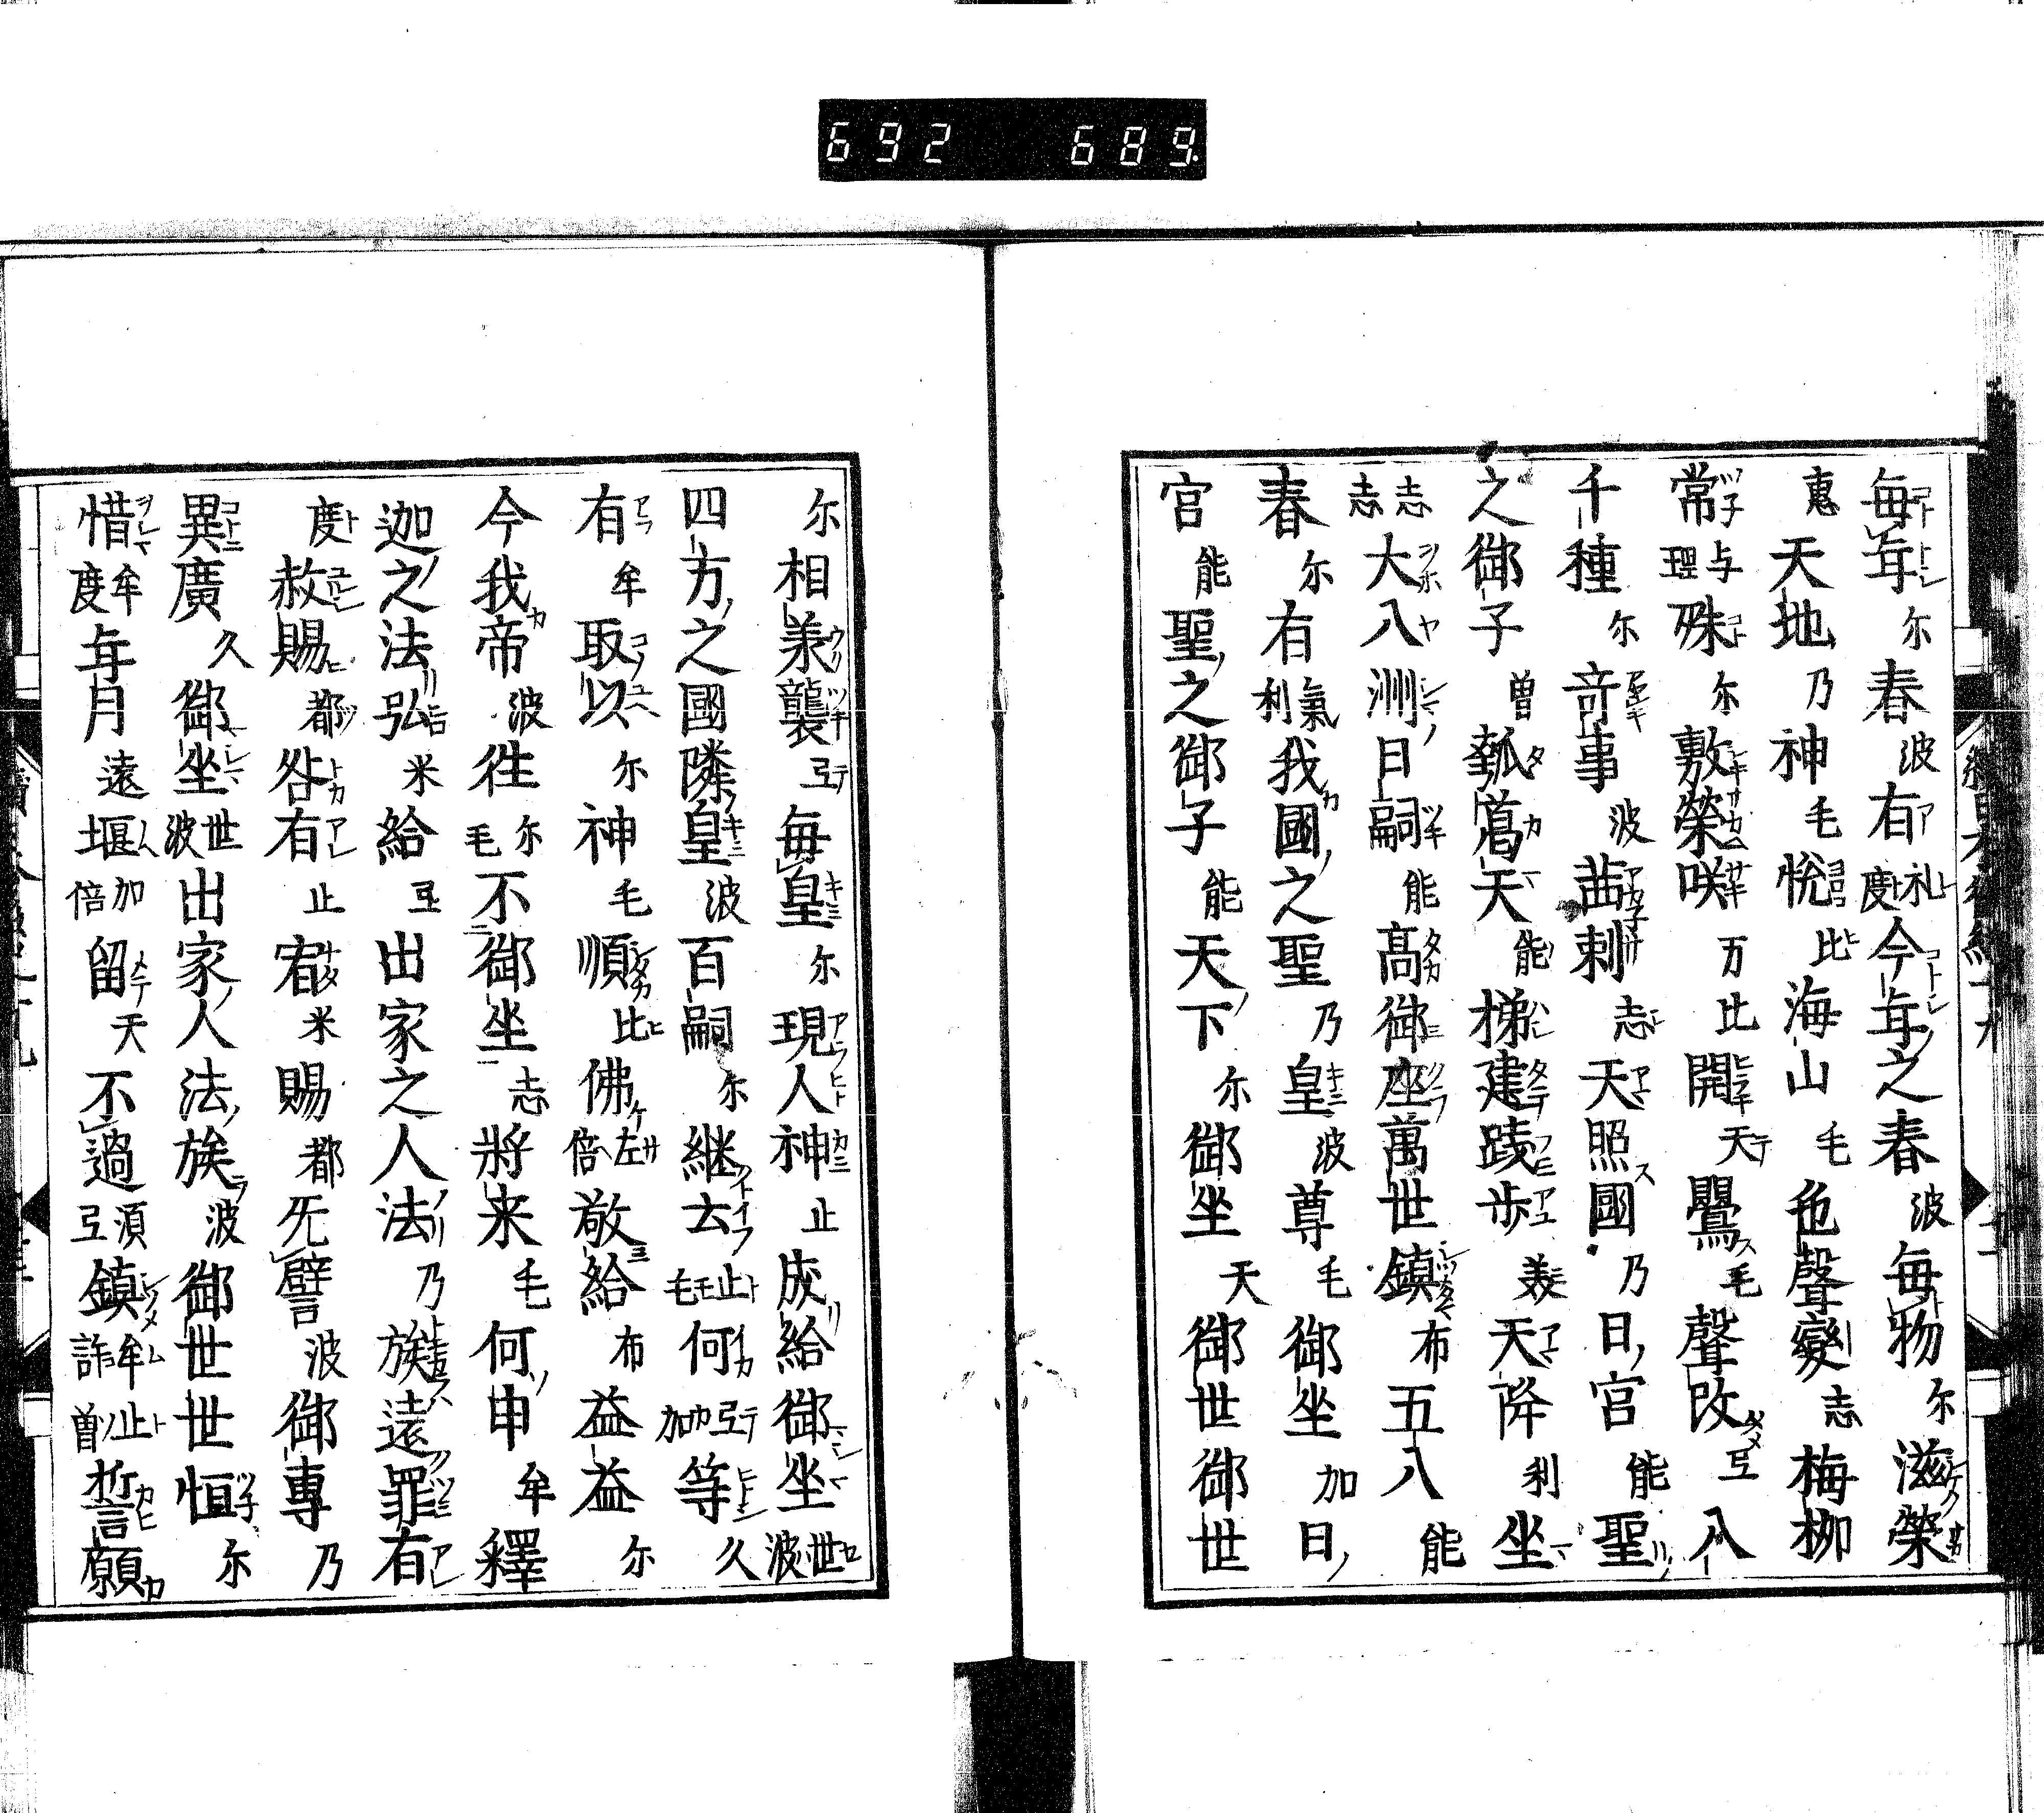 692 689
毎年尓春波有礼度今年之春波毎物尓滋榮
惠天地乃神毛悅比海山毛色聲變志梅柳
常与理殊尓敷榮咲万比開天鸎毛聲改弖八
千種尓奇事波茜刺志天照國乃日宮能聖
之御子曽瓠葛天能梯建踐歩美天降利坐
志志大八洲日嗣能高御座萬世鎮布五八能
春尓有氣利我國之聖乃皇波尊毛御坐加日
宮能聖之御子能天下尓御坐天御世御世
尓相羕襲弖毎皇尓現人神止成給御坐世波
四方之國隣皇波百嗣尓継止云毛何弖加等久
有牟取以尓神毛順比佛左倍敬給布益益尓
今我帝波徃尓毛不御坐志將来毛何申牟釋
迦之法弘米給弖出家之人法乃族遠罪有
度赦賜都咎有止宥米賜都旡譬波御專乃
異廣久御坐世波出家人法族波御世世恒尓
惜牟度年月遠堰加倍留天不過須弖鎮牟許止曽誓願